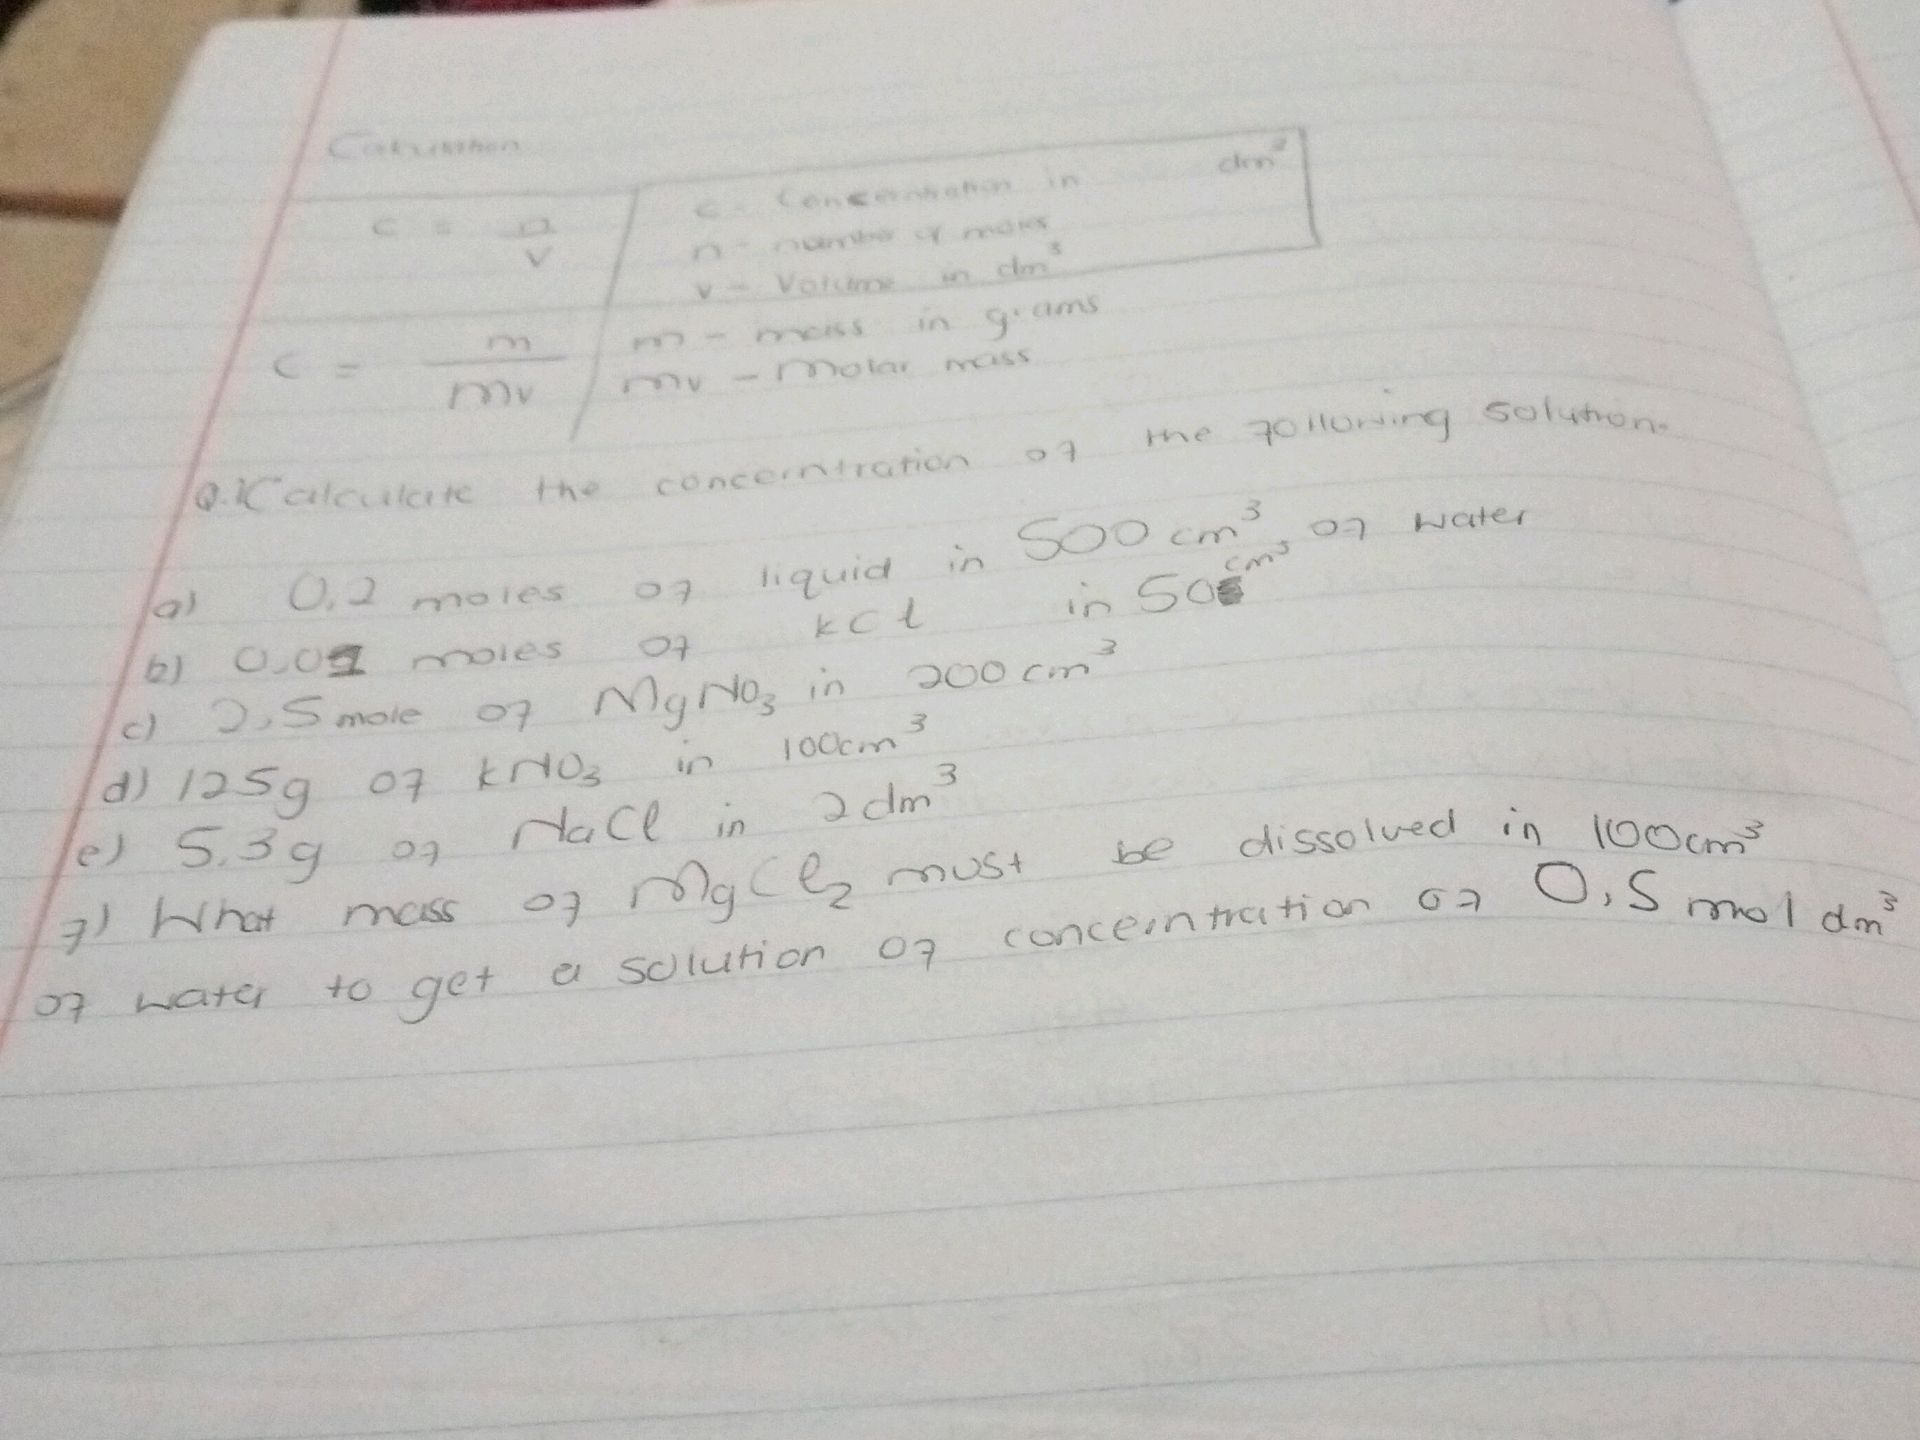 Calculation
c = n/v
c - Concerntration in dm³
n - number of moles
v - Volume in dm³
c = m/mv
m - mass in grams
mv - molar mass
Q.1 Calculate the concerntration of the following solution.
a) 0,2 moles of liquid in 500 cm³ of water
b) 0.01 moles of kCl in 50 cm³
c) 2,5 mole of MgNO₃ in 200 cm³
d) 125g of kNO₃ in 100cm³
e) 5.3g of NaCl in 2dm³
f) What mass of MgCl₂ must be dissolved in 100cm³
of water to get a solution of concerntration of 0,5 mol dm³